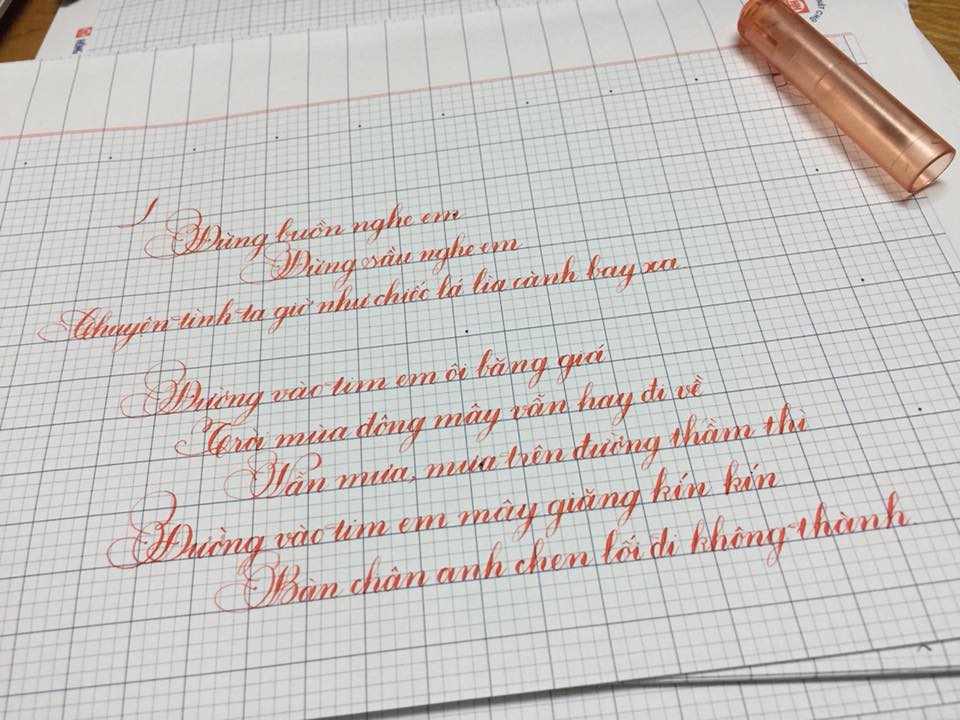 Đừng buồn nghe em
Đừng sầu nghe em
Chuyện tình ta giờ như chiếc lá lìa cành bay xa
Đường vào tim em ôi băng giá
Trời mùa đông mây vẫn hay đi về
Vẫn mưa, mưa trên đường thầm thì
Đường vào tim em mây giăng kín kín
Bàn chân anh chen lối đi không thành